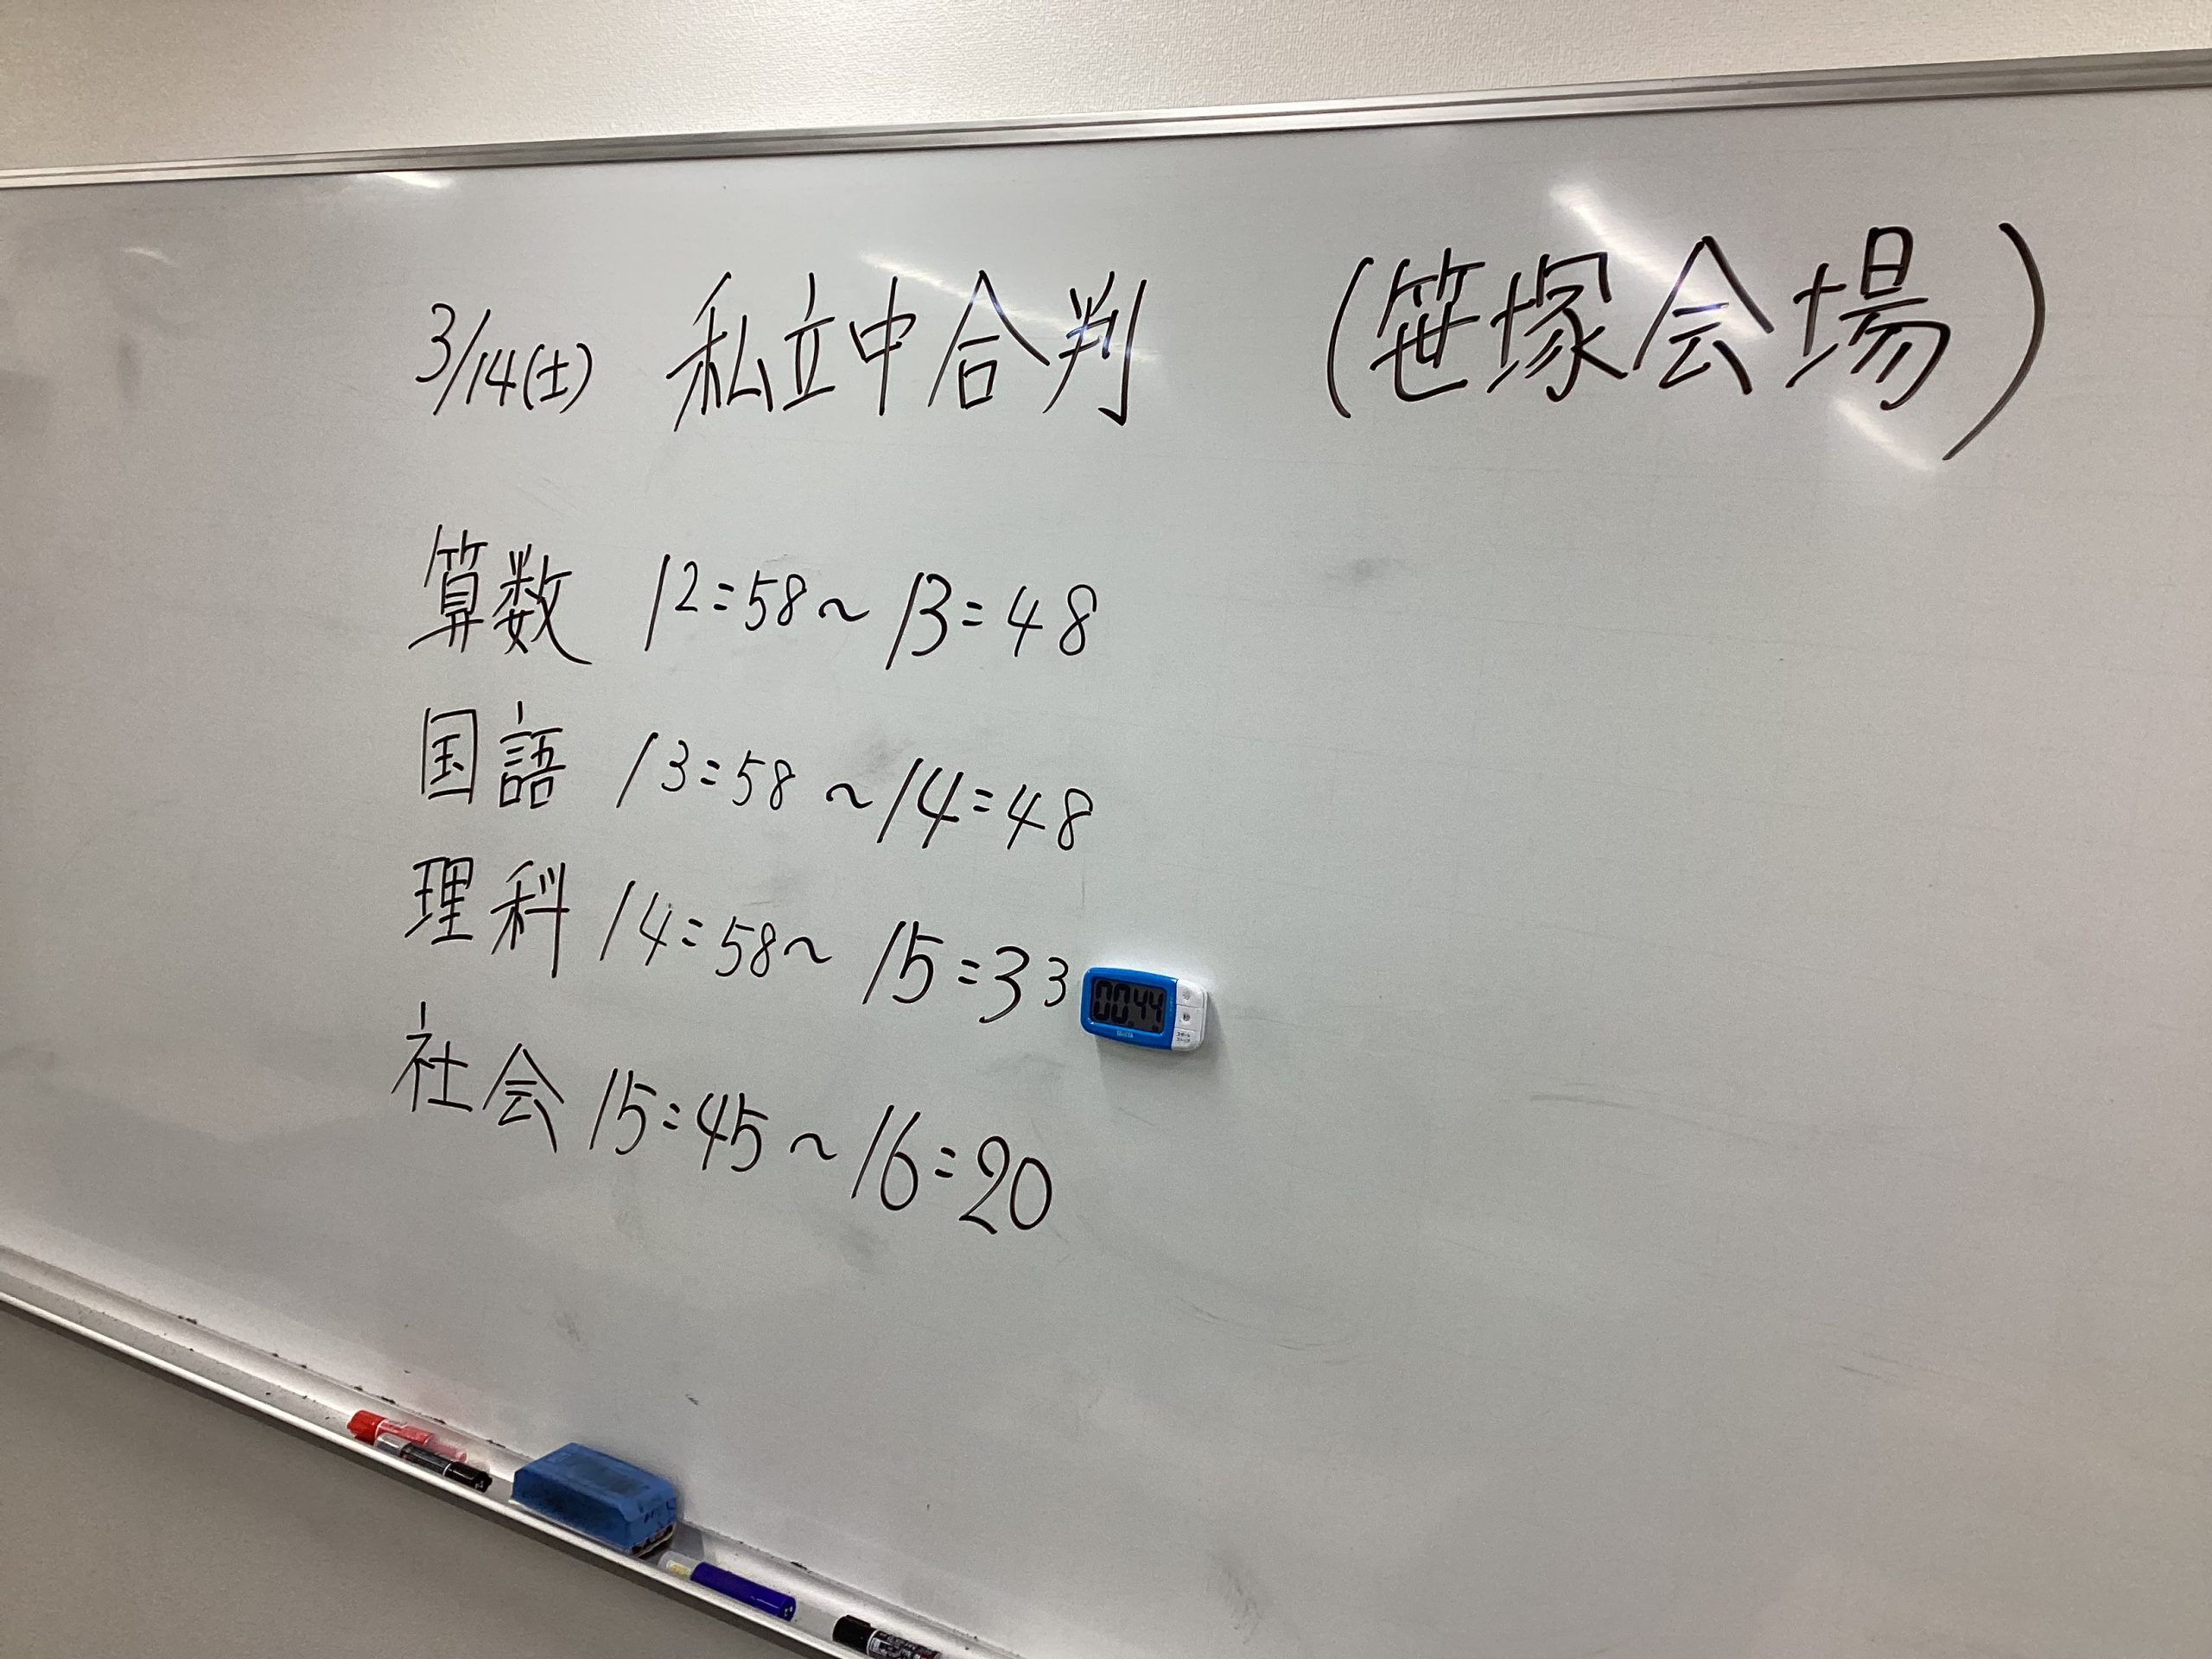 3/14(土) 私立中合判 (笹塚会場)
算数 12:58~13:48
国語 13:58~14:48
理科 14:58~15:33
00 44
社会 15:45~16:20